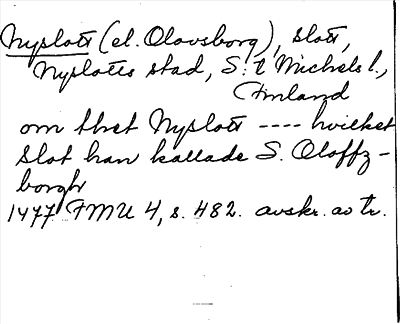 Nyslott (el. Olovsborg), slott,
Nyslotts stad, S:t Michels l.,
Finland
om thet Nyslott ---- hvilket
Slot han kallade S. Oloffz-
borgh
1477 FMU 4, s. 482. avskr. av tr.